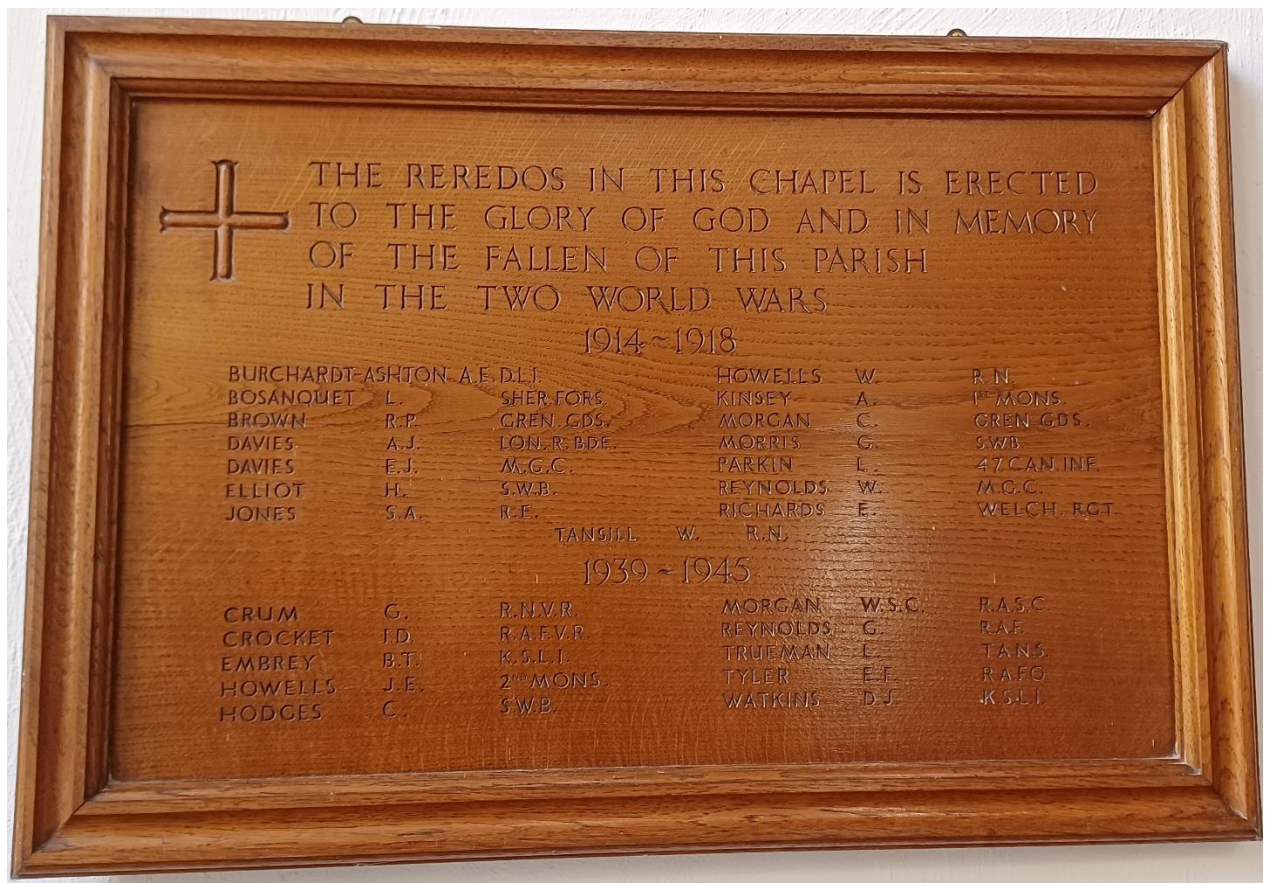 THE REREDOS IN THIS CHAPEL IS ERECTED
TO THE GLORY OF GOD AND IN MEMORY
OF THE FALLEN OF THIS PARISH
IN THE TWO WORLD WARS
1914~1918
BURCHARDT-ASHTON A.E. D.L.I.
BOSANQUET L. SHER. FORS.
BROWN R.P. GREN. GDS.
DAVIES A.J. LON. R. BDE.
DAVIES E.J. M.G.C.
ELLIOT H. S.W.B.
JONES S.A. R.E.
HOWELLS W. R.N.
KINSEY A. 1ST MONS.
MORGAN C. GREN. GDS.
MORRIS G. S.W.B.
PARKIN L. 47 CAN. INF.
REYNOLDS W. M.G.C.
RICHARDS E. WELCH. RGT.
TANSILL W. R.N.
1939~1945
CRUM G. R.N.V.R.
CROCKET I.D. R.A.F.V.R.
EMBREY B.T. K.S.L.I.
HOWELLS J.E. 2ND MONS.
HODGES C. S.W.B.
MORGAN W.S.C. R.A.S.C.
REYNOLDS G. R.A.F.
TRUEMAN L. T.A.N.S.
TYLER E.E. R.A.F.O
WATKINS D.J. K.S.L.I.